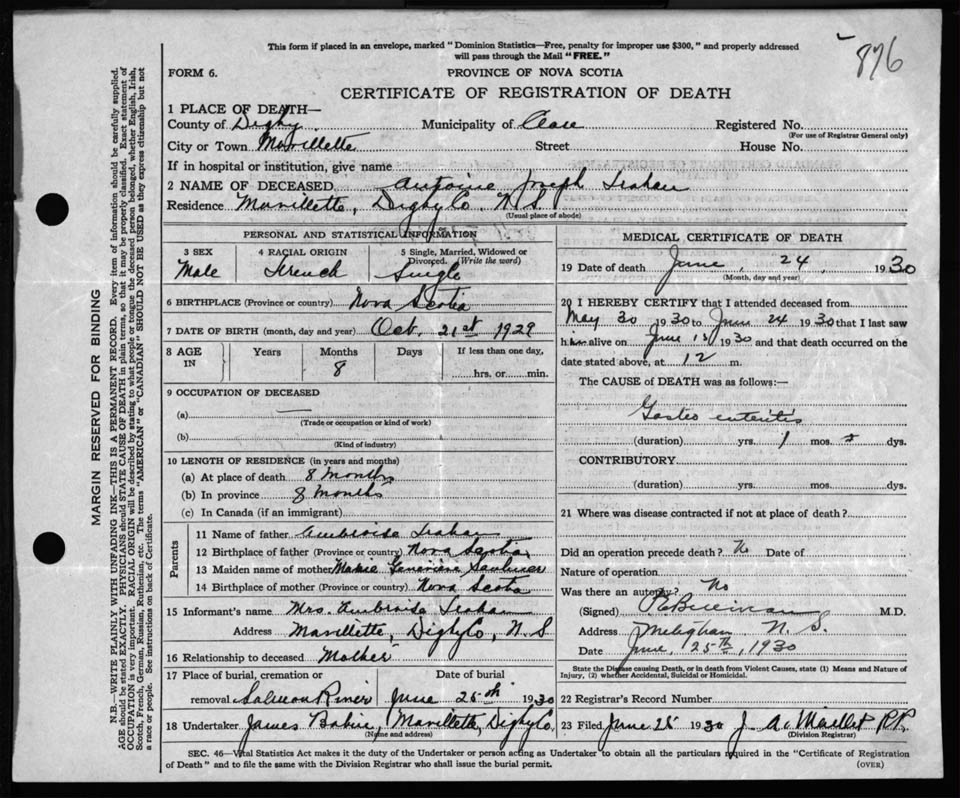 This form if placed in an envelope, marked "Dominion Statistics—Free, penalty for improper use $300," and properly addressed
will pass through the Mail "FREE."
876
FORM 6.
PROVINCE OF NOVA SCOTIA
CERTIFICATE OF REGISTRATION OF DEATH
1 PLACE OF DEATH—
County of Digby Municipality of Clare Registered No.
(For use of Registrar General only)
City or Town Mavillette Street House No.
If in hospital or institution, give name
2 NAME OF DECEASED Antoine Joseph
Residence Mavillette, Digby Co. N S
(Usual place of abode)
PERSONAL AND STATISTICAL INFORMATION
3 SEX 4 RACIAL ORIGIN 5 Single, Married, Widowed or
Divorced. (Write the word)
Male French Single
6 BIRTHPLACE (Province or country) Nova Scotia
7 DATE OF BIRTH (month, day and year) Oct. 21st 1929
8 AGE IN Years Months Days If less than one day,
8 hrs. or min.
9 OCCUPATION OF DECEASED
(a) —
(Trade or occupation or kind of work)
(b)
(Kind of industry)
10 LENGTH OF RESIDENCE (in years and months)
(a) At place of death 8 months
(b) In province 8 months
(c) In Canada (if an immigrant)
Parents
11 Name of father Ambroise
12 Birthplace of father (Province or country) Nova Scotia
13 Maiden name of mother Marie Genevieve Saulnier
14 Birthplace of mother (Province or country) Nova Scotia
15 Informant's name Mrs. Ambroise
Address Mavillette, Digby Co, N S
16 Relationship to deceased Mother
17 Place of burial, cremation or Date of burial
removal Salmon River June 25th 1930
18 Undertaker James Babin, Mavillette, Digby Co.
(Name and address)
MEDICAL CERTIFICATE OF DEATH
19 Date of death June, 24, 1930
(Month, day and year)
20 I HEREBY CERTIFY that I attended deceased from
May 30 1930 to June 24 1930 that I last saw
him alive on June 1930 and that death occurred on the
date stated above, at 12 m.
The CAUSE of DEATH was as follows:—
Gastro enteritis
(duration) yrs. 1 mos. dys.
CONTRIBUTORY
(duration) yrs. mos. dys.
21 Where was disease contracted if not at place of death?
Did an operation precede death? No Date of
Nature of operation
Was there an autopsy? No
(Signed) M.D.
Address Meteghan N. S.
Date June, 25th, 1930
State the Disease causing Death, or in death from Violent Causes, state (1) Means and Nature of
Injury, (2) whether Accidental, Suicidal or Homicidal.
22 Registrar's Record Number
23 Filed June 25 1930 J. A. Maillet
(Division Registrar)
SEC. 46—Vital Statistics Act makes it the duty of the Undertaker or person acting as Undertaker to obtain all the particulars required in the "Certificate of Registration
of Death" and to file the same with the Division Registrar who shall issue the burial permit.
(OVER)
MARGIN RESERVED FOR BINDING
N.B.—WRITE PLAINLY WITH UNFADING INK—THIS IS A PERMANENT RECORD. Every item of information should be carefully supplied.
AGE should be stated EXACTLY. PHYSICIANS should STATE CAUSE OF DEATH in plain terms, so that it may be properly classified. Exact statement of
OCCUPATION is very important. RACIAL ORIGIN will be described by stating to what people or tongue the deceased person belonged, whether English, Irish,
Scotch, French, German, Russian, Ruthenian, etc. The terms "AMERICAN" or "CANADIAN" SHOULD NOT BE USED as they express citizenship but not
a race or people. See instructions on back of Certificate.